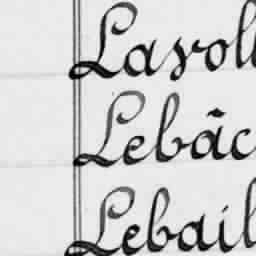 Lavoll
Lebâc
Lebail